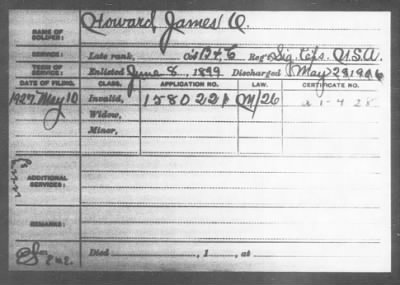 NAME OF SOLDIER: Howard, James O.
SERVICE: Late rank, Reg't Sig. Corps. U.S.A.
TERM OF SERVICE: Enlisted June 8, 1899 Discharged May 23 1906
DATE OF FILING. CLASS. APPLICATION NO. LAW. CERTIFICATE NO.
1927 May 10 Invalid, 1580221 M/26
Widow,
Minor,
ADDITIONAL SERVICES:
REMARKS:
Died , 1 , at